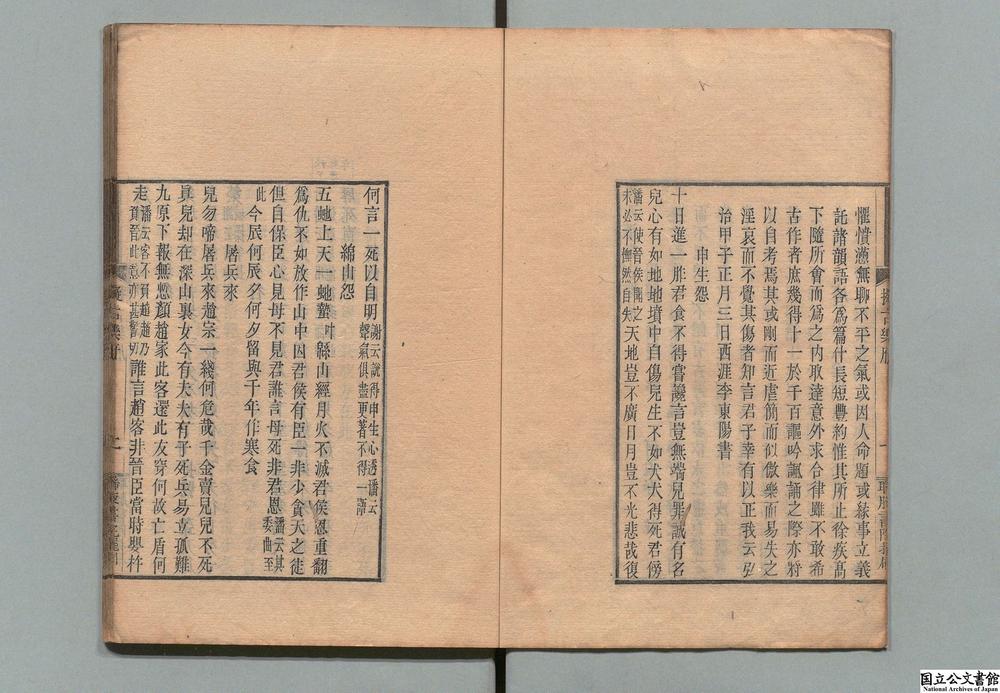 懼憤懣無聊不平之氣或因人命題或緣事立義
託諸韻語各爲篇什長短豐約惟其所止徐疾髙
下隨所會而爲之内取達意外求合律雖不敢希
古作者庶幾得十一於千百謳吟諷誦之際亦將
以自考焉其或剛而近虐簡而似傲樂而易失之
淫哀而不覺其傷者知言君子幸有以正我云弘
治甲子正月三日西涯李東陽書
申生怨
十日進一胙君食不得嘗讒言豈無端兒罪誠有名
兒心有如地地墳中自傷兒生不如犬犬得死君傍
潘云使晉侯聞之
未必不憮然自失
天地豈不廣日月豈不光悲哉復
擬古樂府
何言一死以自明
謝云説得申生心透潘云
聲氣俱盡更著不得一語
綿山怨
五虵上天一虵蟄
縣山經月火不滅君侯恩重翻
爲仇不如放作山中囚君侯有臣一非少貪天之徒
但自保臣心見母不見君誰言母死非君恩
潘云其
委曲至
此
今辰何辰夕何夕留與千年作寒食
屠兵來
兒勿啼屠兵來趙宗一綫何危哉千金賣兒兒不死
真兒却在深山裏女今有夫夫有子死兵易立孤難
九原下報無慙顔趙家此客還此友穿何故亡盾何
走
潘云客不負趙趙乃
負晉此意亦甚警切
誰言趙客非晉臣當時嬰杵
擬古樂府
二
国立公文書館
National Archives of Japan